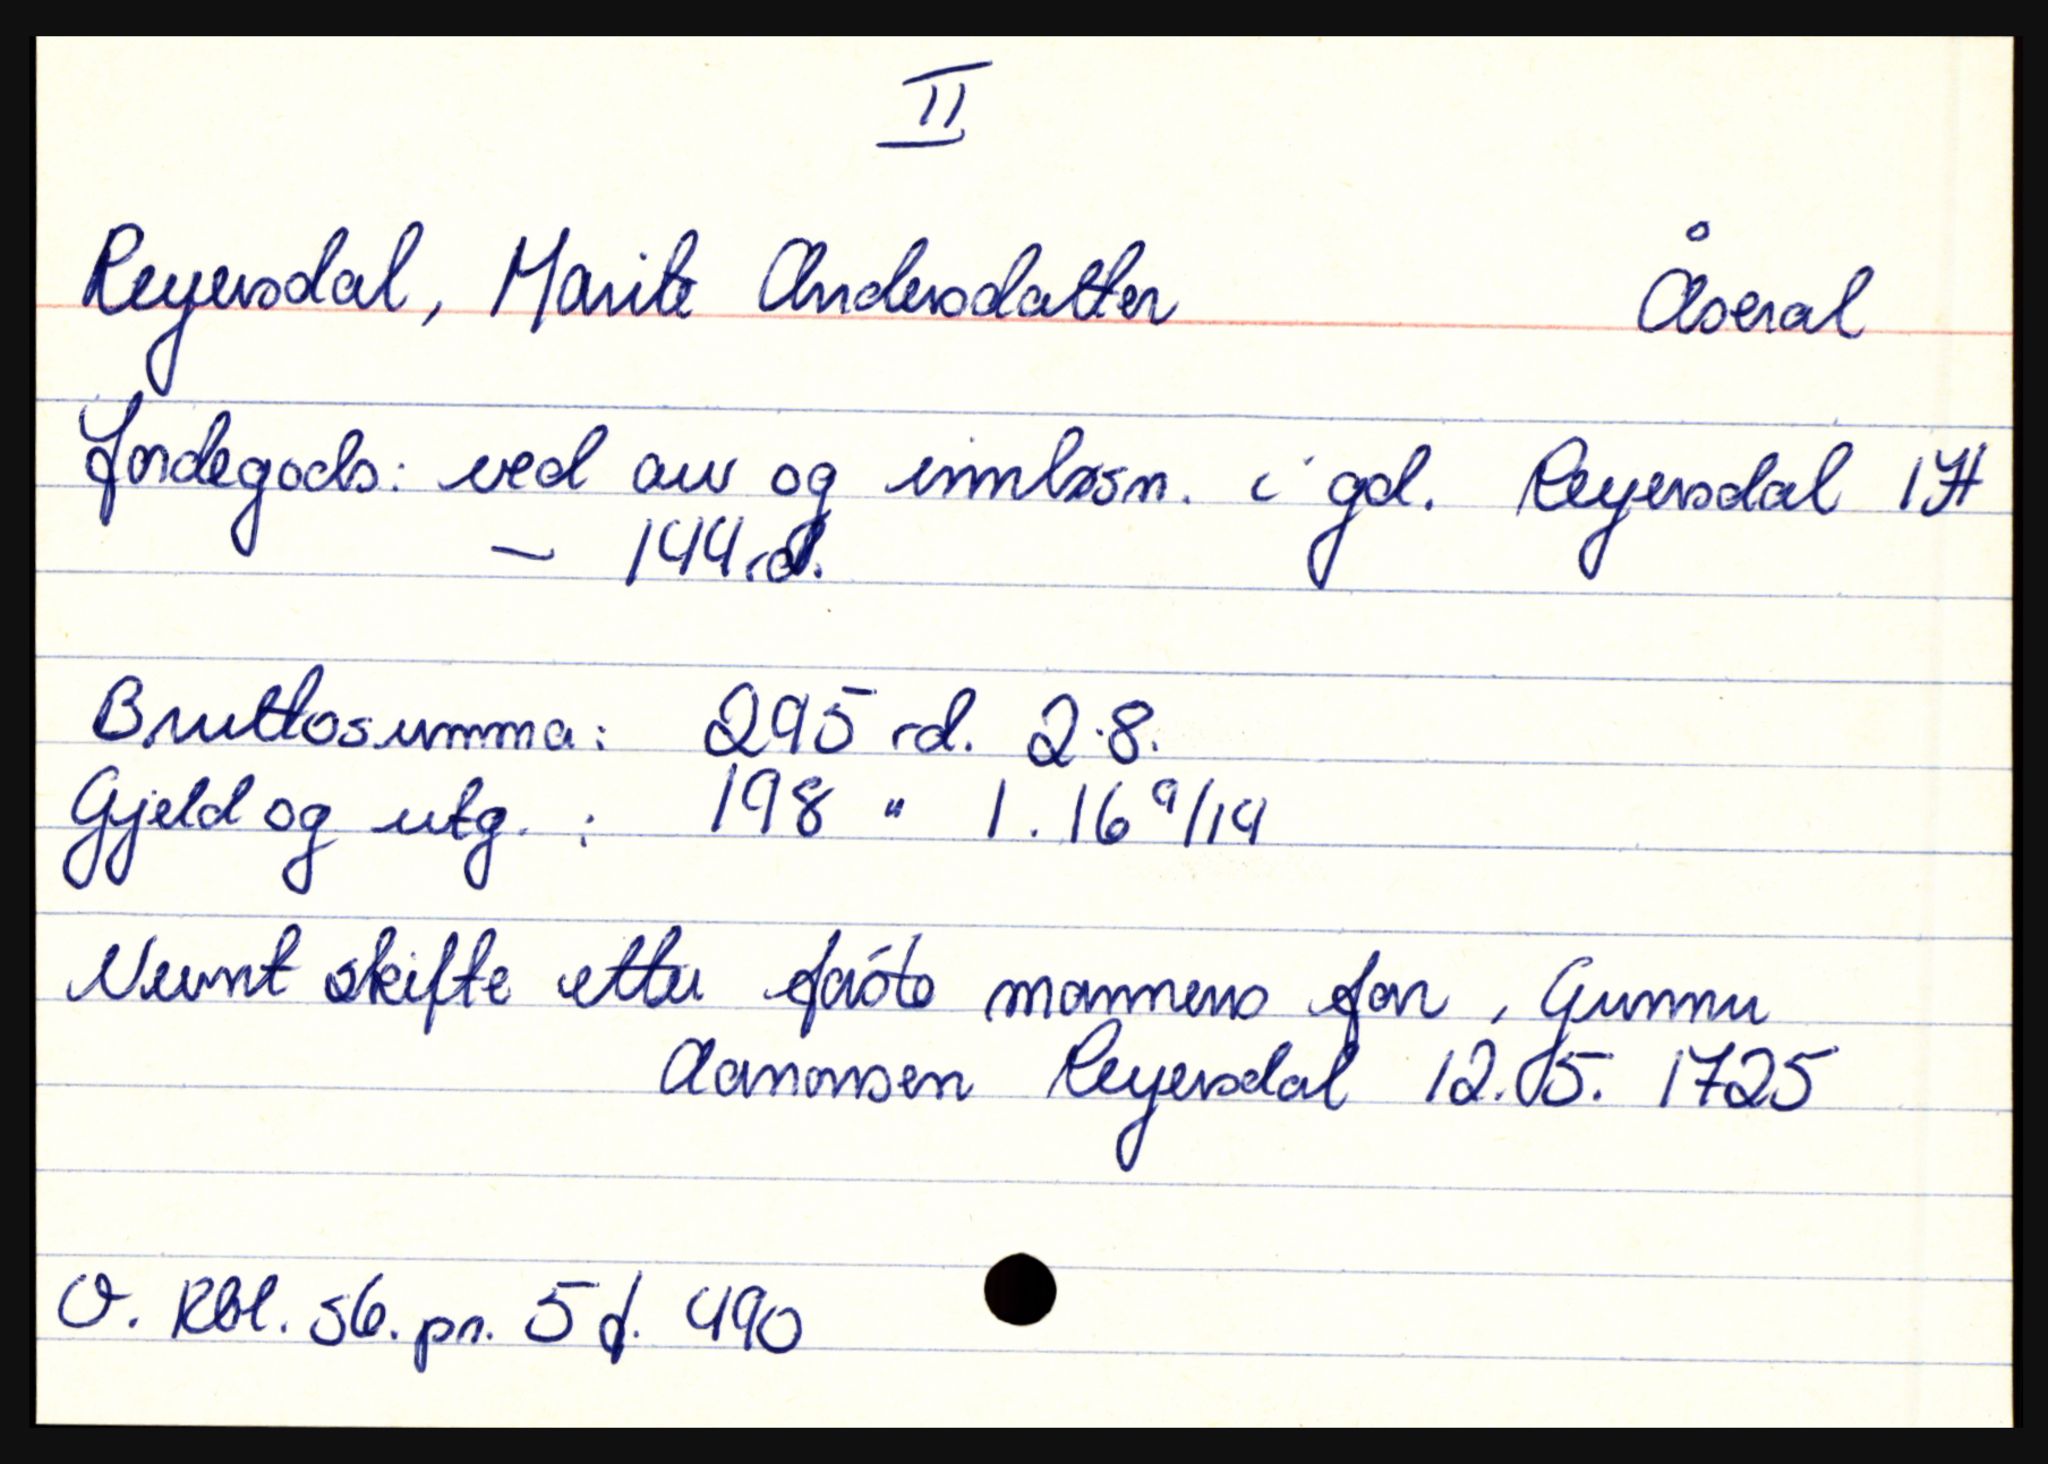 II
Reyersdal, Marite Andersdatter Åseral
Jordegods: ved arv og innløsn. i gd. Reyersdal 1 H
— 144 rd.
Bruttosumma: 295 rd. 2.8.
Gjeld og utg. : 198 " 1. 16 9/14
Nevnt skifte etter første mannens far, Gunner
Aanonsen Reyersdal 12.05. 1725
V. Rbl. sk. pr. 5 f. 490